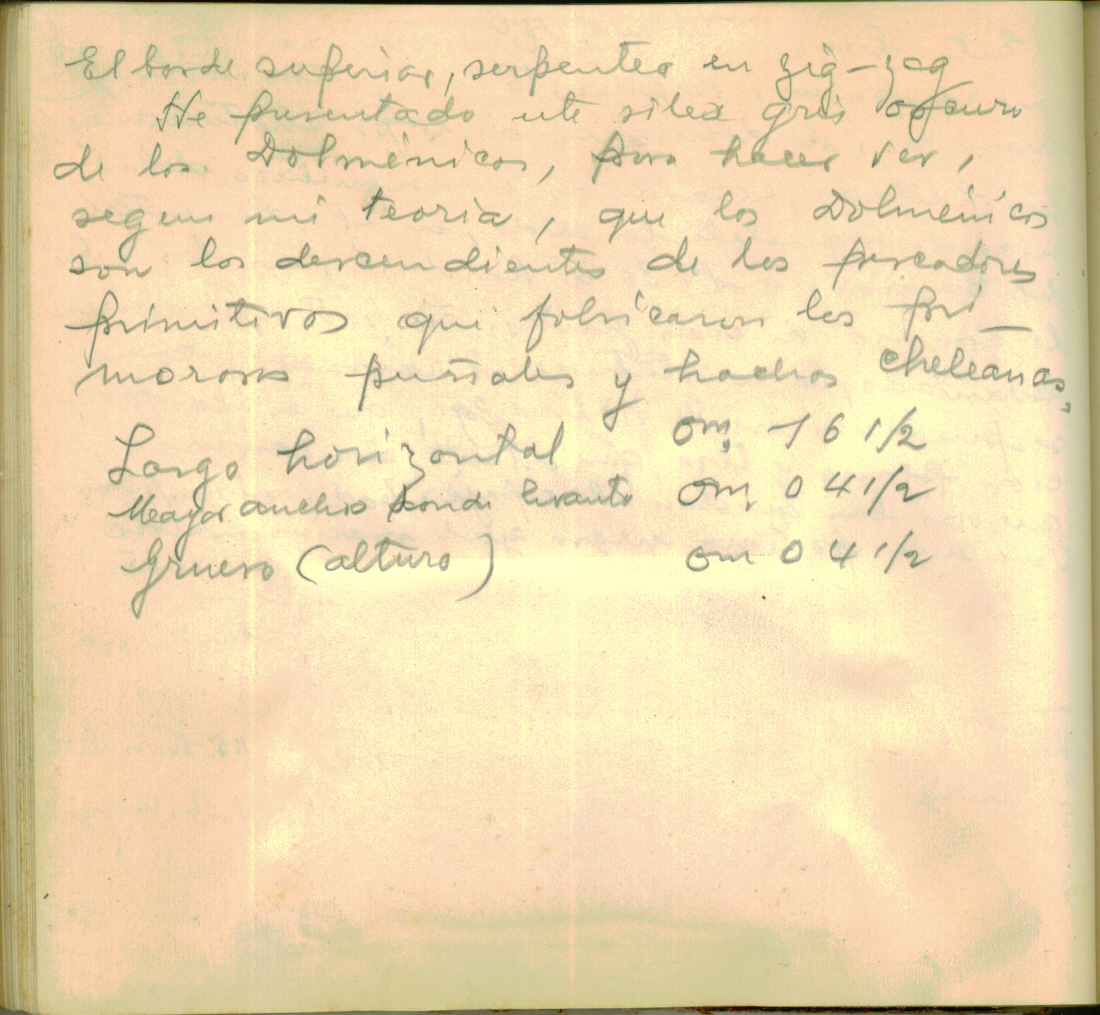 El borde superior, serpentea en zig-zag
He presentado este silex gris oscuro
de los Dolménicos, para hacer ver,
segun mi teoria, que los Dolménicos
son los descendientes de los pescadores
primitivos que fabricaron los pri_
morosos puñales y hachas cheleanas.
Largo horizontal 0m, 16 1/2
Mayor ancho donde levanto 0m, 04 1/2
Grueso (altura) 0m 04 1/2